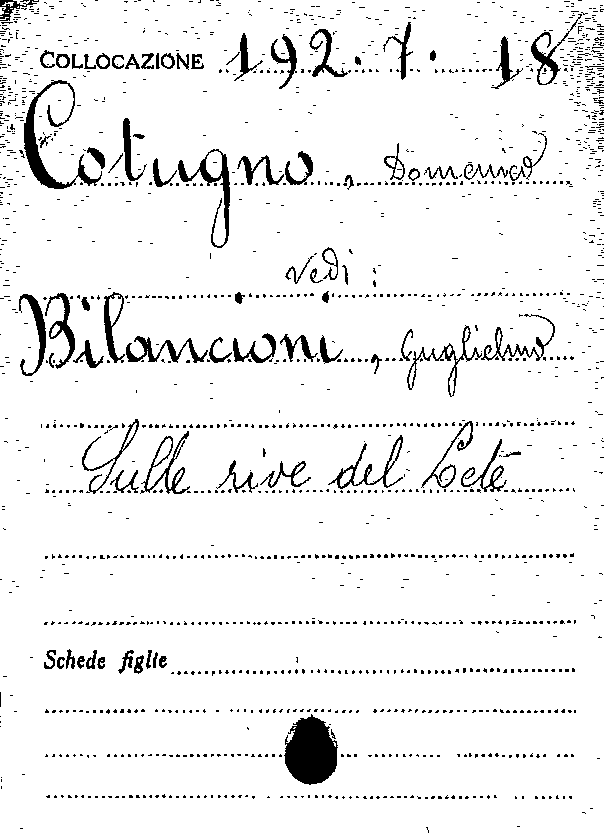 COLLOCAZIONE 192.7.18
Cotugno, Domenico
vedi:
Bilancioni, Guglielmo
Sulle rive del Lete
Schede figlie